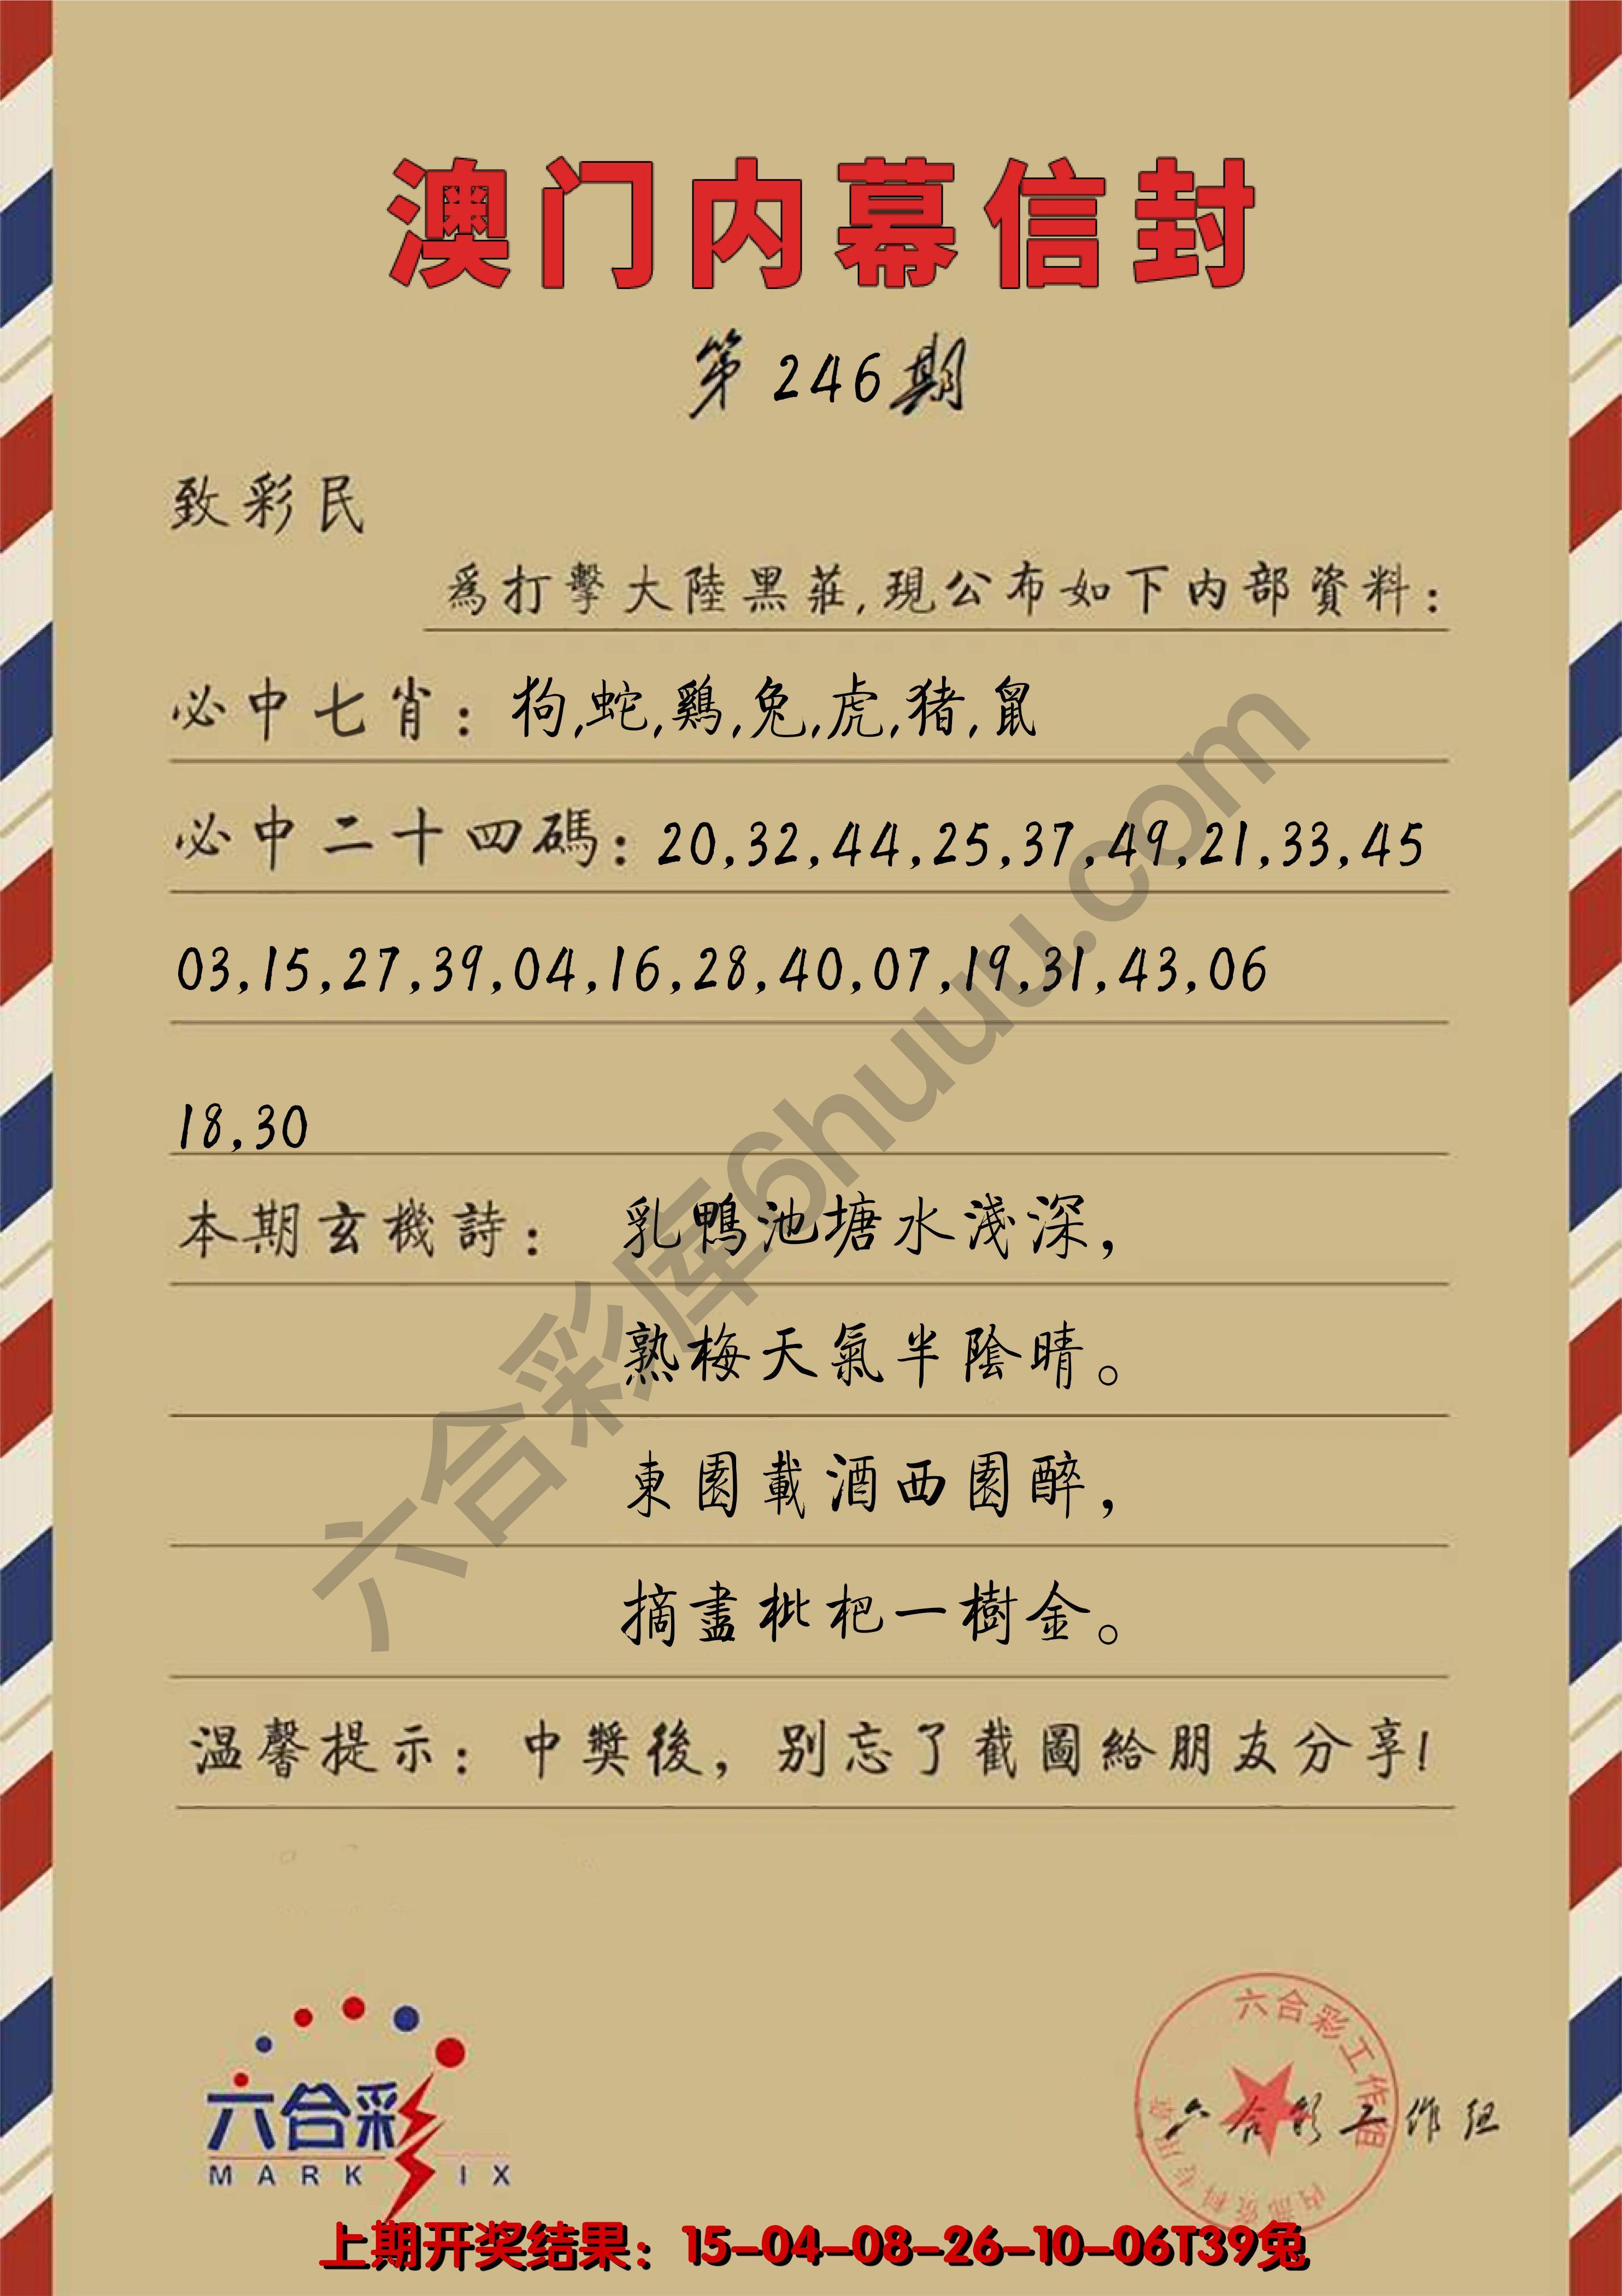 澳门内幕信封
第246期
致彩民
為打擊大陸黑莊,現公布如下内部資料:
必中七肖:狗,蛇,鷄,兔,虎,猪,鼠
必中二十四碼:20,32,44,25,37,49,21,33,45
03,15,27,39,04,16,28,40,07,19,31,43,06
18,30
本期玄機詩: 乳鴨池塘水淺深,
熟梅天氣半陰晴。
東園載酒西園醉,
摘盡枇杷一樹金。
温馨提示:中獎後,别忘了截圖給朋友分享!
六合彩库6huuu.com
六合彩
MARK IX
六合彩工作组
内部资料专用章
六合彩工作组
上期开奖结果:15-04-08-26-10-06T39兔